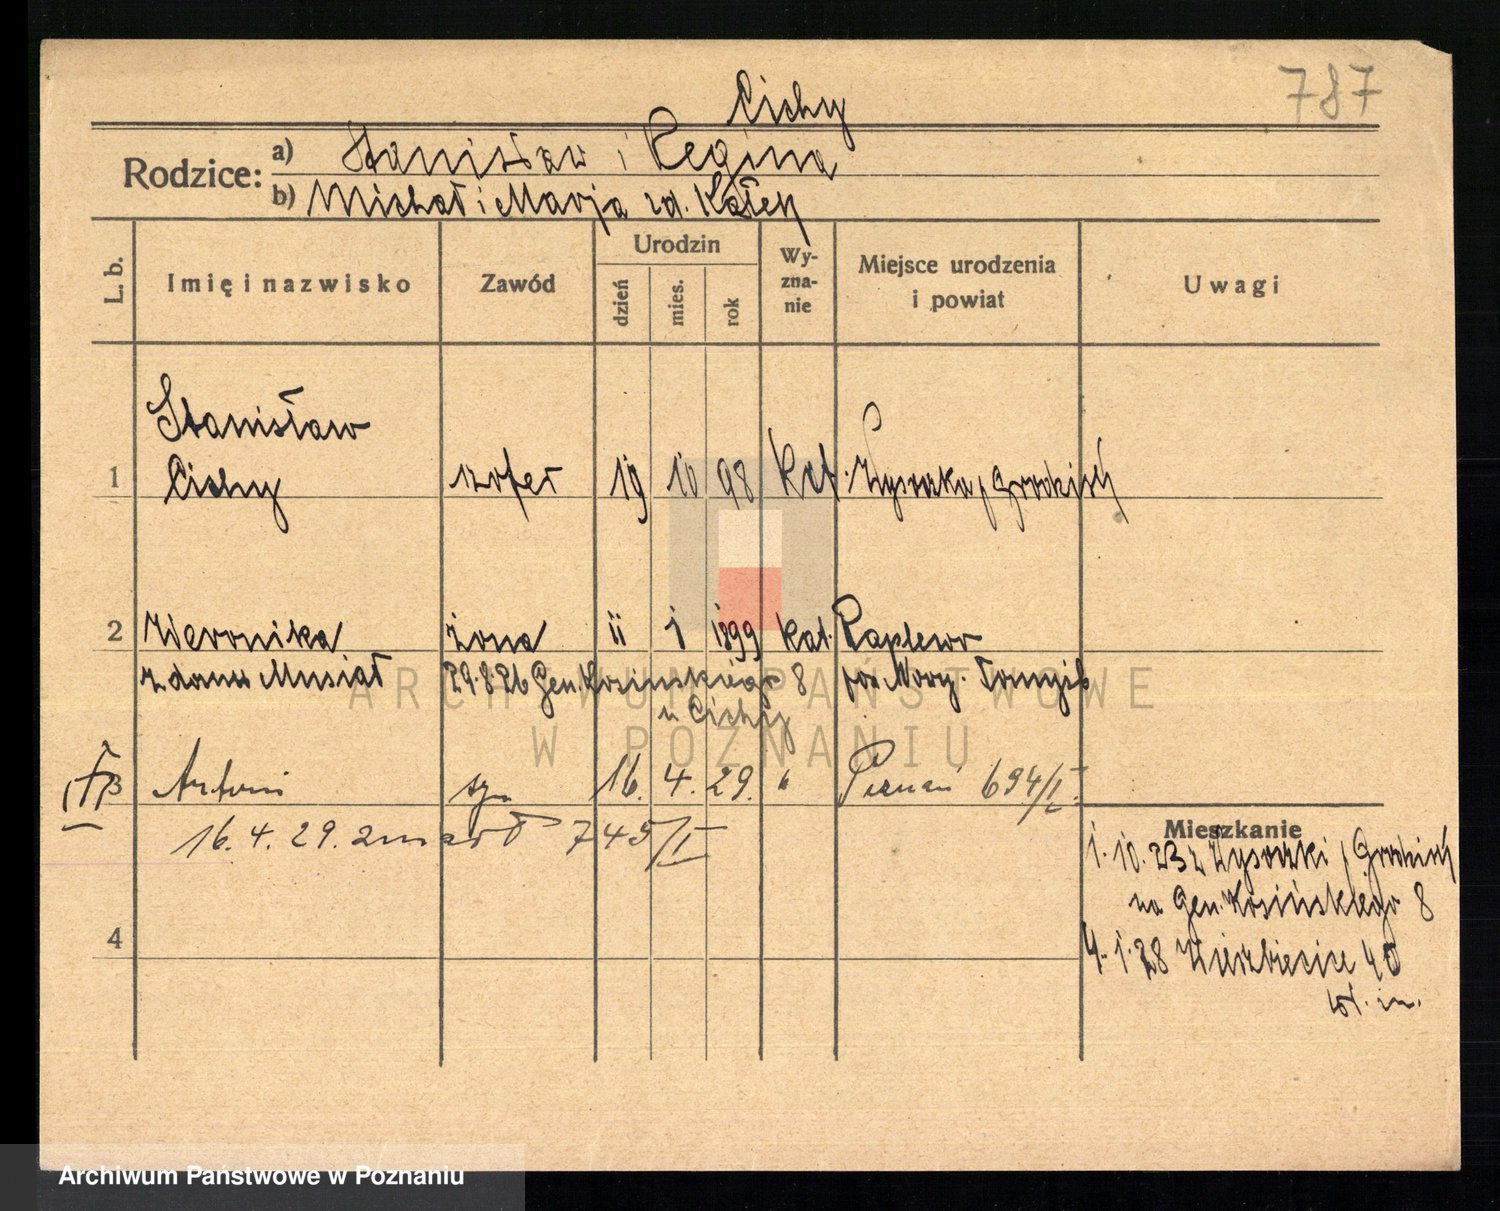 Cichy
787
Rodzice:
a) Stanisław i Regina
b) Michał i Marja zd. Kałek
L. b.
Imię i nazwisko
Zawód
Urodzin
dzień
mies.
rok
Wy-
zna-
nie
Miejsce urodzenia
i powiat
Uwagi
Stanisław
1 Cichy szofer 19 10 98 kat. Wysoczka, Grodzisk
2 Weronika żona 11 1 1899 kat. Paplewo
z domu Musiał 29.8.26 Gen. Kosińskiego 8 pow. Nowy. Tomyśl
u Cichy
3 Antoni syn 16. 4. 29. " Poznań 694/I.
16. 4. 29. zmarł 745/I
4
Mieszkanie
1. 10. 23 z Wysoczki, Grodzisk
na Gen. Kosińskiego 8
4. 1. 28 Wierzbięcice 40
wł. m.
ARCHIWUM PAŃSTWOWE
W POZNANIU
Archiwum Państwowe w Poznaniu